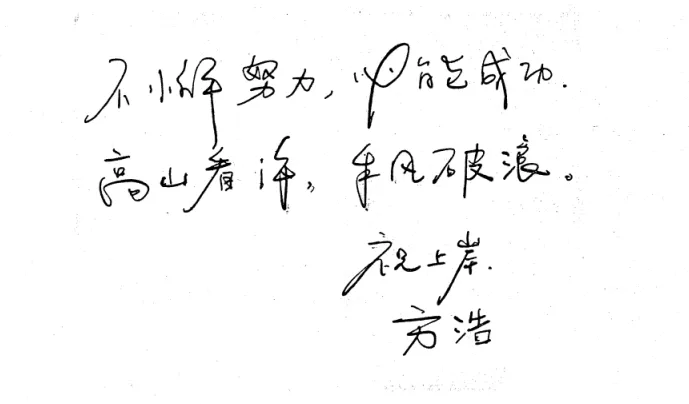 不懈努力,必能成功.
高山看许。乘风破浪。
祝上岸.
方浩